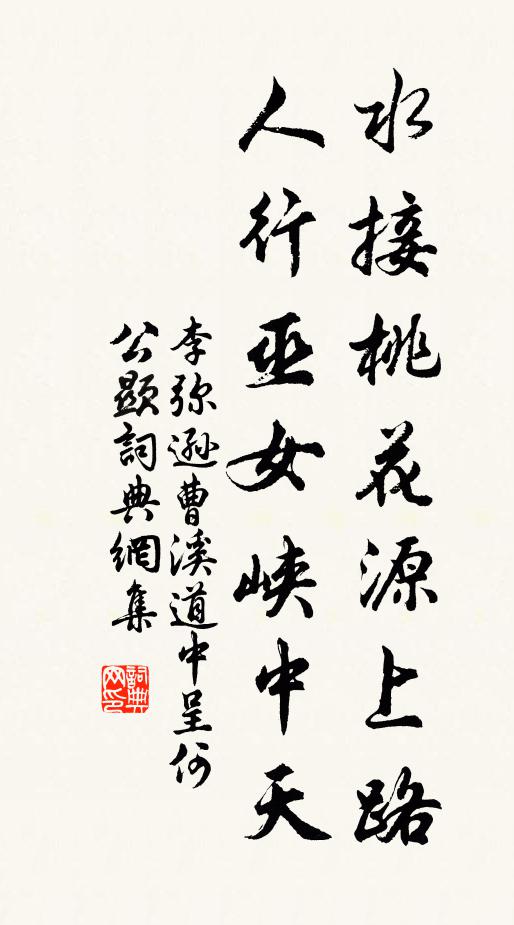 水接桃花源上路
人行巫女峽中天
李弥遜曹溪道中呈何
公顯詞典網集
詞典
网印